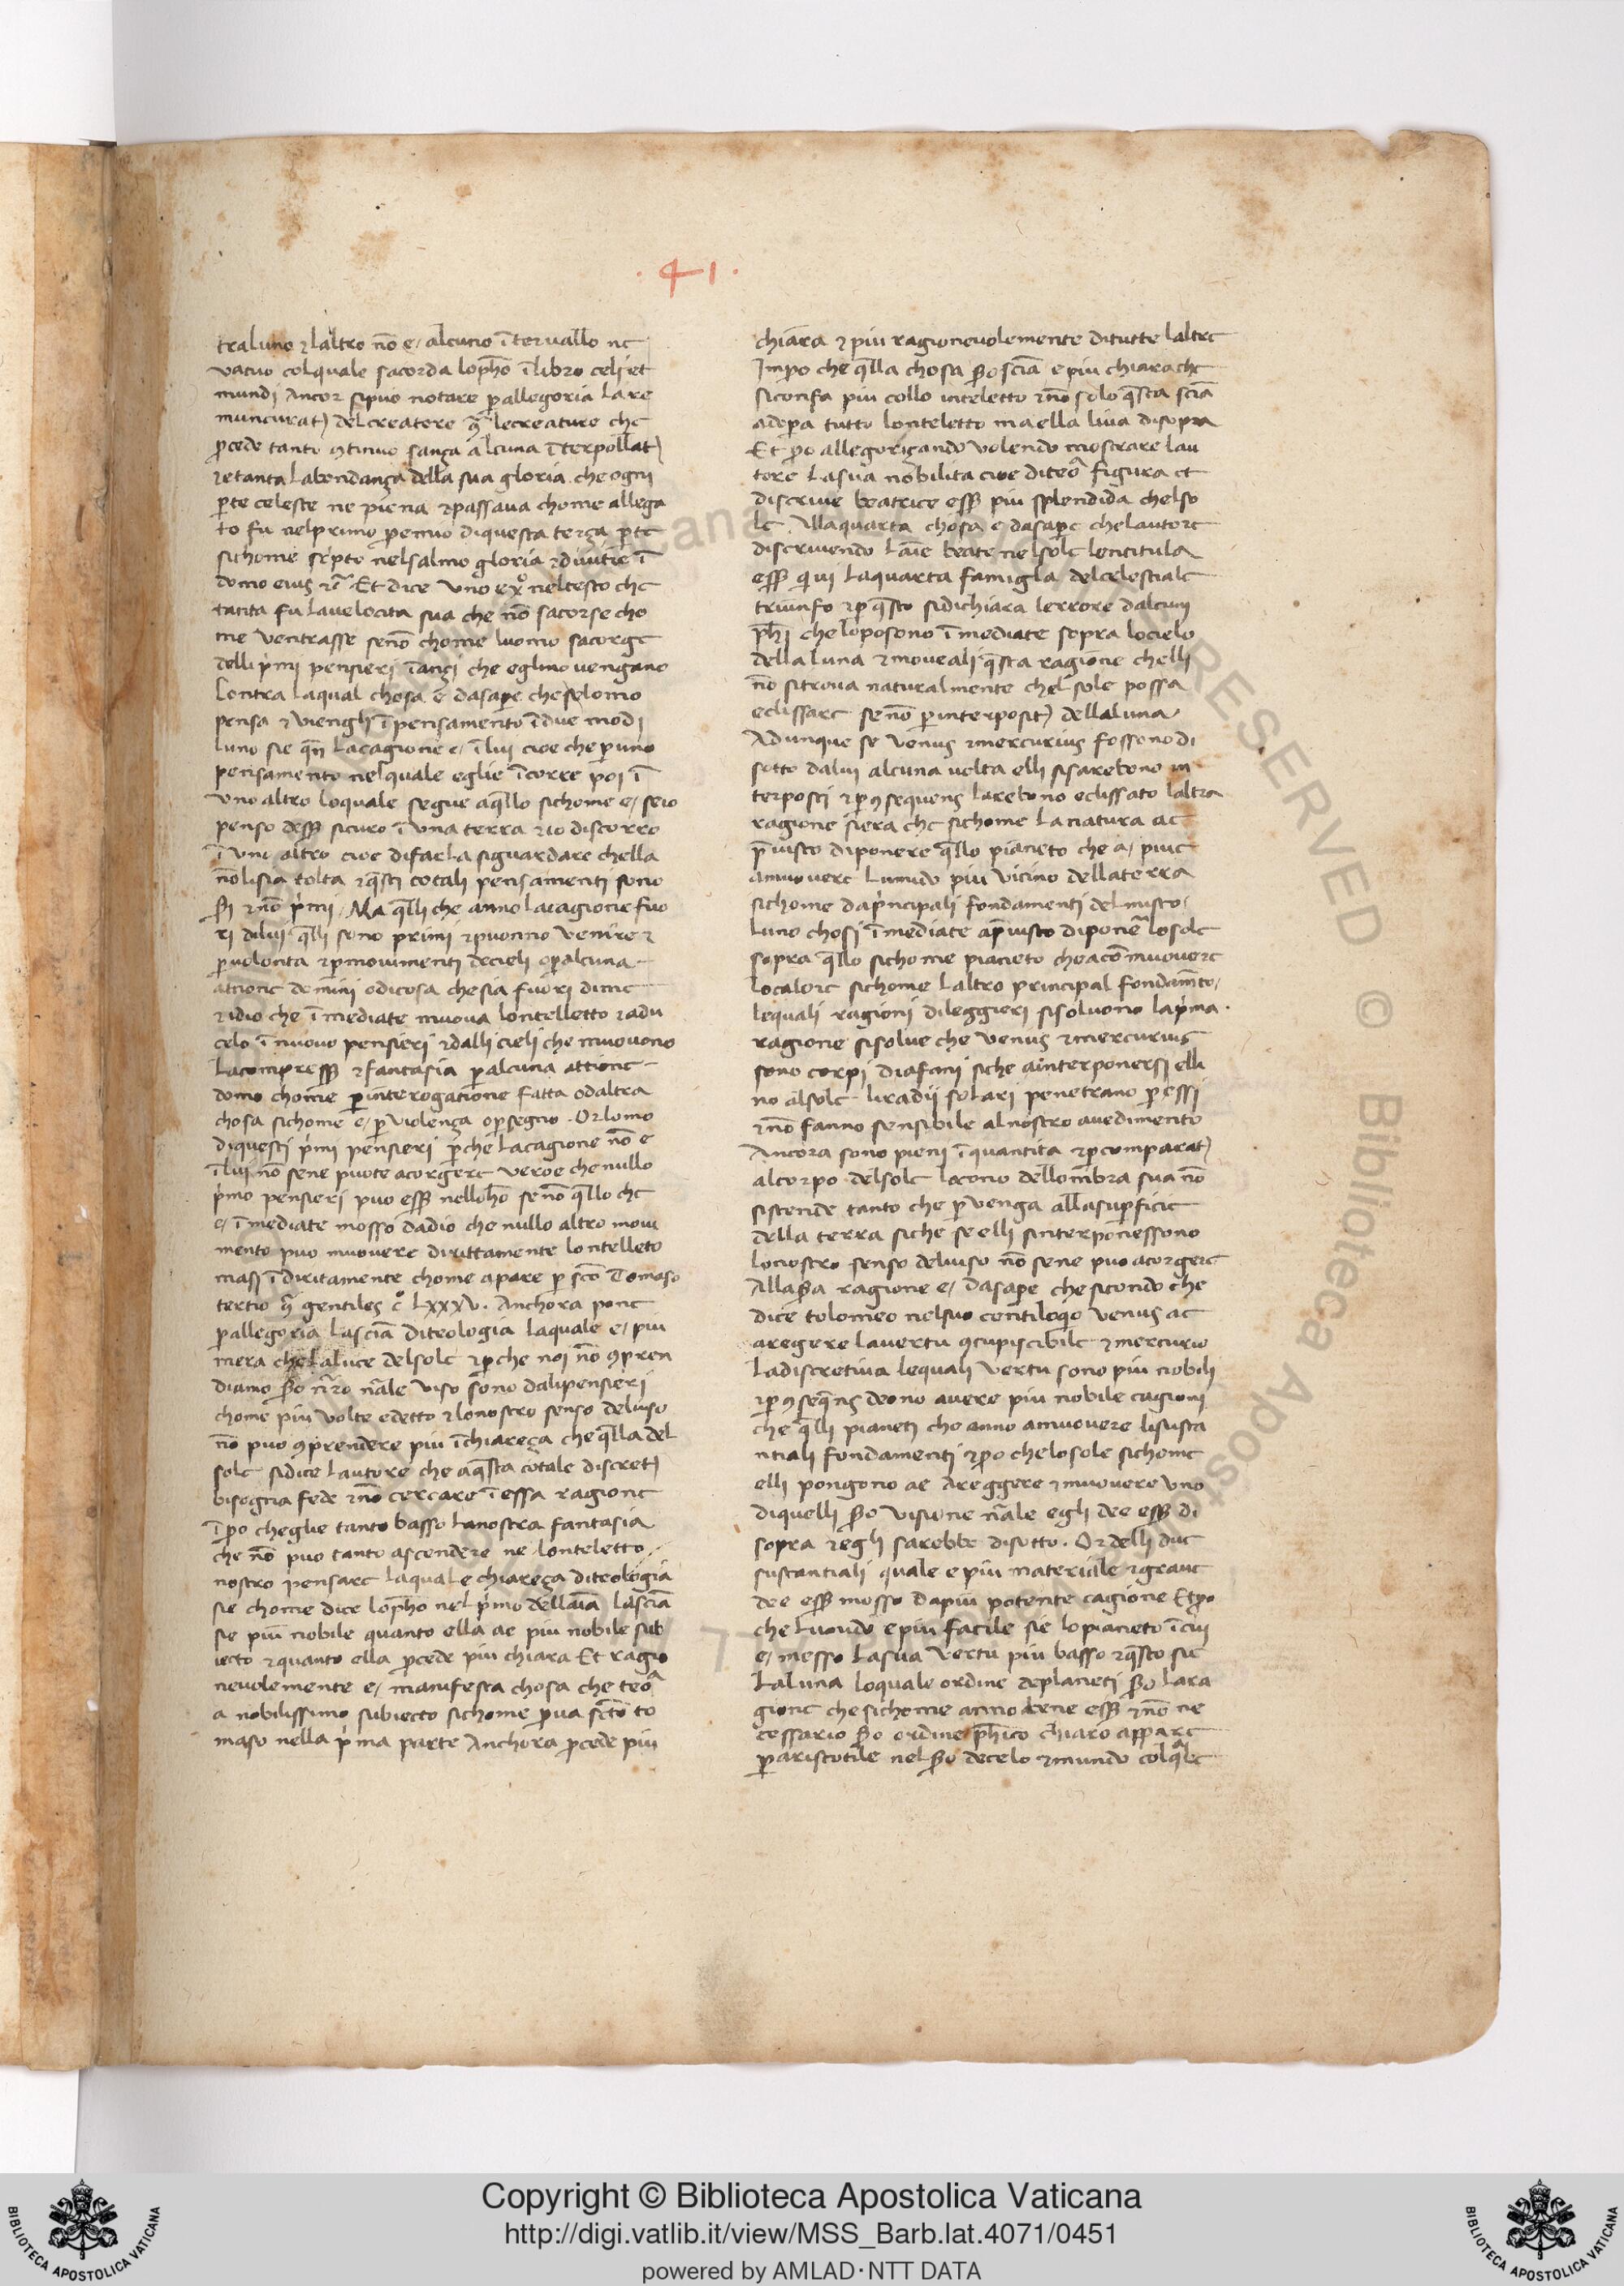 . 41 .
traluno ⁊ laltro nō e / alcuno ītervallo ne
vacuo colquale sacorda lopħo ī libro celi et
mundi Ancor sipuo notare ꝑallegoria la re
del creatore lecreature che
ꝓcede tanto ꝯtinuo sança alcuna īterpollat
⁊etanta labondança della sua gloria che ogni
ꝑte celeste ne piena ⁊passava chome allega
to fu nelprimo di questa terça ꝑte
sichome nelsalmo gloria ⁊divitie ī
domo eius ⁊c̄ Et dice neltesto che
tatita fu lavelocita sua che nō sacorse cho
me ventrasse senō chome luomo sacorge
delli p̍mi pensieri īançi che eglino vengano
Contra laqual chosa e dasaꝑe chesselomo
pensa ⁊ viengli ī pensamento ī due modi
luno sie lacagione e / ī lui cioe che ꝑuno
pensamento nelquale eglie īcorre poi ī
uno altro loquale segue aq̄llo sichome e / seio
penso sicuro ī una terra ⁊io discorro
ī uno altro cioe difarla siguardare chella
nōlisia tolta ⁊q̄sti cotali pensamenti sono
⁊nō p̍mi . Ma q̄lli che anno lacagione fuo
ri dilui q̄lli sono primi ⁊puonno venire ⁊
ꝑvolonta ⁊ꝑmovimenti decieli oꝑalcuna
attione domini odicosa chesia fuori dime
⁊idio che ī mediate muova lontelletto ⁊adu
celo ī nuovo pensieri ⁊dalli cieli che muovono
⁊fantasia ꝑalcuna attione
domo chome ꝑ interogatione fatta odaltra
chosa sichome e / ꝑ violença oꝑsegno . Or lomo
diquesti p̍mi pensieri ꝑche lacagione nō e
ī lui nō sene puote acorgere veroe che nullo
p̍mo pensieri puo nellohō se nō q̄llo che
e / ī mediate mosso dadio che nullo altro movi
mento puo muovere dirittamente lontelleto
ī diritamente chome apare ꝑ sc̄o Tomaso
tertio gentiles c̊ Lxxxv . Anchora pone
ꝑallegoria lasciā diteologia laquale e / piu
mera chelaluce delsole ⁊ꝑche noi nō ꝯpren
diamo nr̄o nāle viso sono dalipensieri
chome piu volte edetto ⁊lonostro senso delviso
nō puo ꝯprendere piu ī chiareça che q̄lla del
sole sidice lautore che aq̄sta cotale discret
bisogna fede ⁊nō cercare ī essa ragione
īꝑo cheglie tanto basso lanostra fantasia
che nō puo tanto ascendere ne lonteletto
nostro pensare laquale chiareça diteologia
sie chome dice lopħo nel p̍mo dellaīa lasciā
sie piu nobile quanto ella ae piu nobile sub
iecto ⁊quanto ella ꝓcede piu chiara Et ragio
nevolemente e / manifesta chosa che
a nobilissimo subiecto sichome ꝓva sc̄to to
maso nella p̍ma parte Anchora ꝓcede piu
chiara ⁊ piu ragionevolemente ditutte laltre
Imꝑo che q̄lla chosa sciā e piu chiara che
siconfa piu collo inteletto ⁊nō solo q̄sta sciā
adoꝑa tutto lonteletto ma ella liva disopra
Et ꝑo allegoriçando volendo mostrare lau
tore lasua nobilita cioe figura et
discrive beatrice piu splendida chelso
le . Alla quarta chosa e dasaꝑe chelautore
discrivendo laīe beate nel sole lentitula
qui laquarta famigla delcelestiale
triunfo ⁊ꝑ q̄sto sidichiara lerrore dalcuni
pħi che loposono ī mediate sopra locielo
della luna ⁊moveali q̄sta ragione chelli
nō sitrova naturalmente chel sole possa
eclissare se nō ꝑinterposit della luna
Adunque se venus ⁊mercurius fossono di
sotto dalui alcuna volta elli sisarebono in
terposti ⁊ꝑ ꝯsequens larebono eclissato laltra
ragione siera che sichome la natura ae
ꝓvisto diponere q̄llo pianeto che a / piu
amuovere lumido piu vicino dellaterra
sichome dap̍ncipali fondamenti del misto
luno chosi ī mediate a ꝓvisto diponere losole
sopra q̄llo sichome pianeto che a muovere
localore sichome laltro principal fondamēto
lequali ragioni dileggieri sisolvono lap̍ma
ragione sisolve che venus ⁊mercurius
sono corpi diafani siche ainterponersi elli
no alsole liradii solari penetrano ꝑ essi
⁊nō fanno sensibile al nostro avedimento
Ancora sono pieni ī quantita ⁊ꝑ comparat
alcorpo delsole locono dellombra sua nō
sistende tanto che ꝑvenga alla suꝑficie
della terra siche se elli sinterponessono
lonostro senso delviso nō sene puo acorgere
Alla ragione e / dasaꝑe che sicondo che
dice tolomeo nelsuo centiloquio venus ae
aregere lavertu ꝯcupiscibile ⁊ mercurio
ladiscretiva lequali vertu sono piu nobili
⁊ꝑ ꝯseq̄ns deono avere piu nobile cagioni
che q̄lli pianeti che anno amuovere lisusta
ntiali fondamenti ⁊ꝑo chelosole sichome
elli pongono ae areggere ⁊ muovere uno
diquelli visione nāle egli dee di
sopra ⁊egli sarebbe disotto . Or delli due
sustantiali quale e piu materiale ⁊grave
dee mosso dapiu potente cagione Et ꝑo
che lumido e piu facile sie lopianeto ī cui
e / messo lasua vertu piu basso ⁊q̄sto sie
laluna loquale ordine deplaneti lara
gione che sichome anno bene ⁊nō ne
cessario ordine chiaro appare
ꝑaristotile nel decelo ⁊mundo colq̄le
Copyright © Biblioteca Apostolica Vaticana
http://digi.vatlib.it/view/MSS_Barb.lat.4071/0451
powered by AMLAD·NTT DATA
BIBLIOTECA APOSTOLICA VATICANA
BIBLIOTECA APOSTOLICA VATICANA